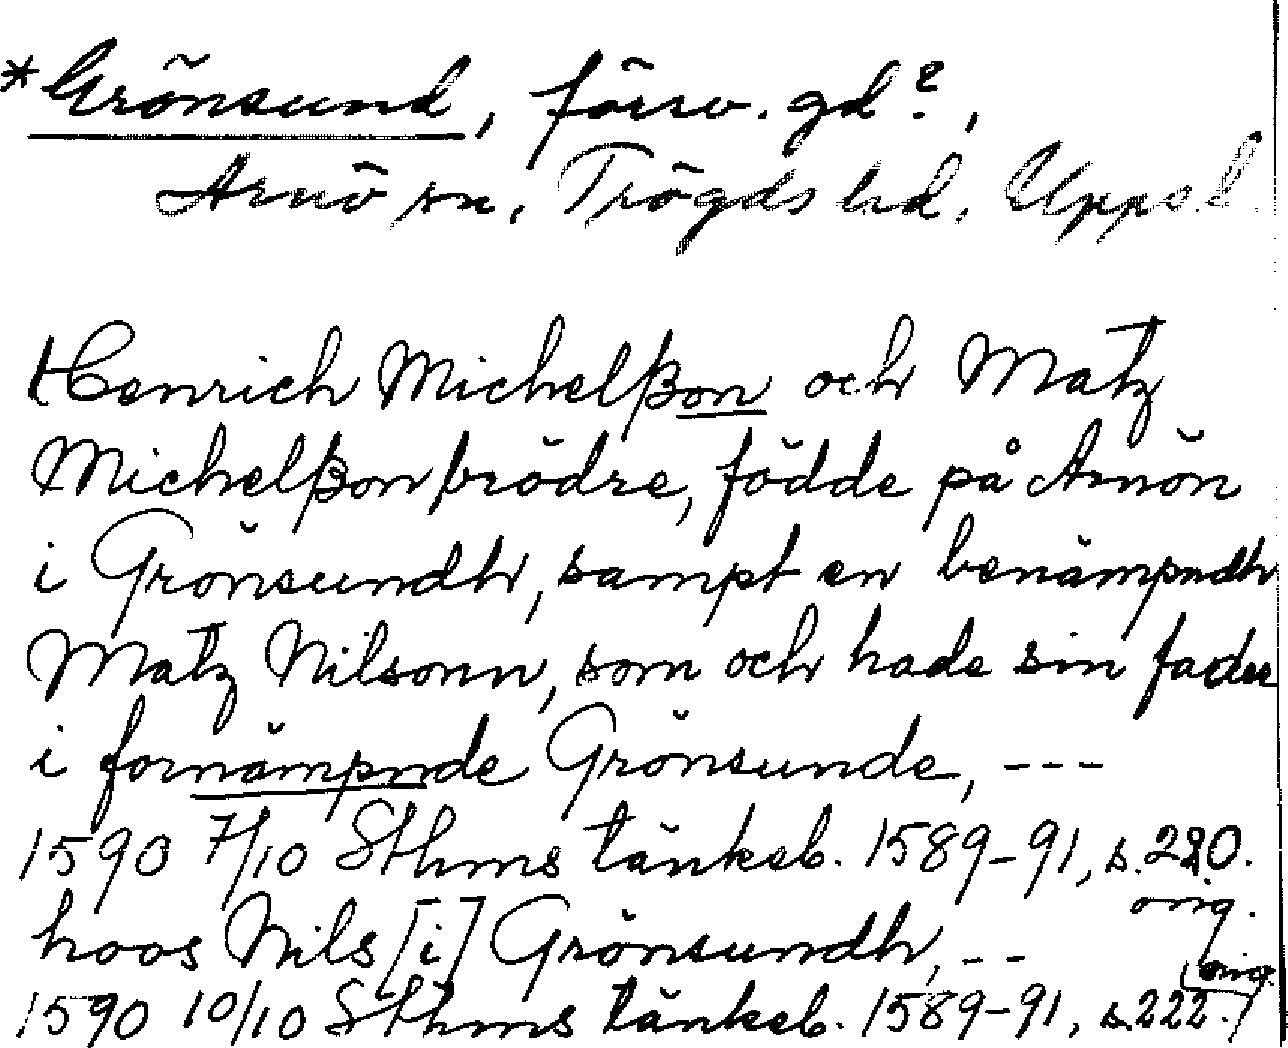 *Grönsund, försv. gd?,
Arnö sn, Trögds hd, Uppsl.
Henrich Michelßon och Matz
Michelßon brödre, födde på Arnön
i Grönsundh, sampt en benämpndh
Matz Nilsonn, som och hade sin fader
i fornämpnde Grönsunde, ---
1590 7/10 Sthms tänkeb. 1589-91, s. 220.
orig.
hoos Nils [i] Grönsundh, --
1590 10/10 Sthms tänkeb. 1589-91, s. 222. (orig.)